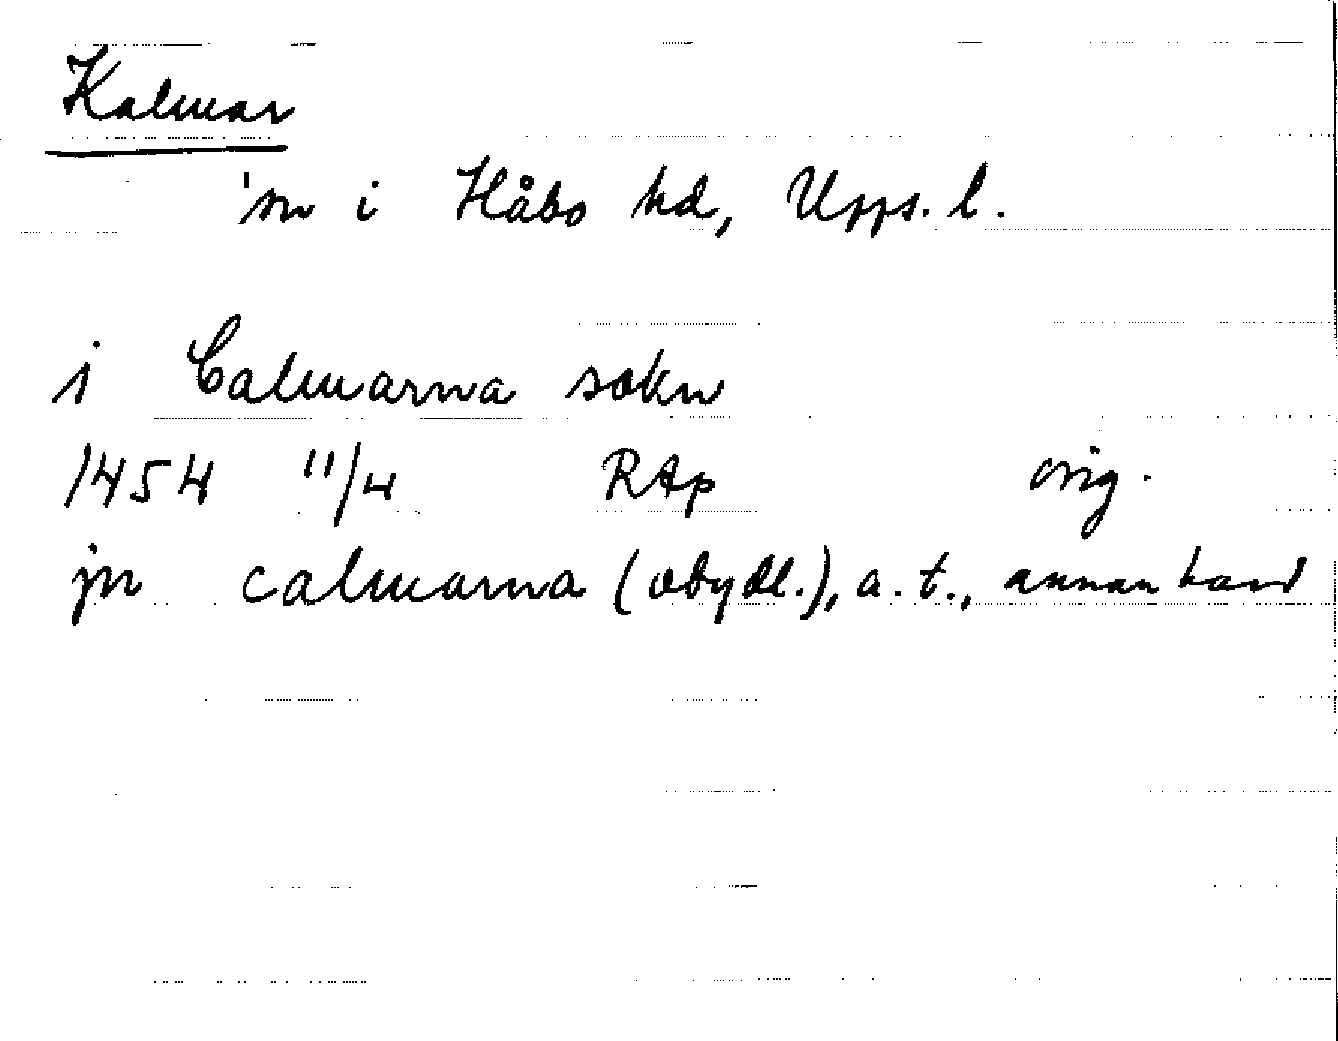 Kalmar
sn i Håbo hd, Upps. l.
i Calmarna sokn
1454 11/4 RAp orig.
jn calmarna (otydl.), a. t., annan hand